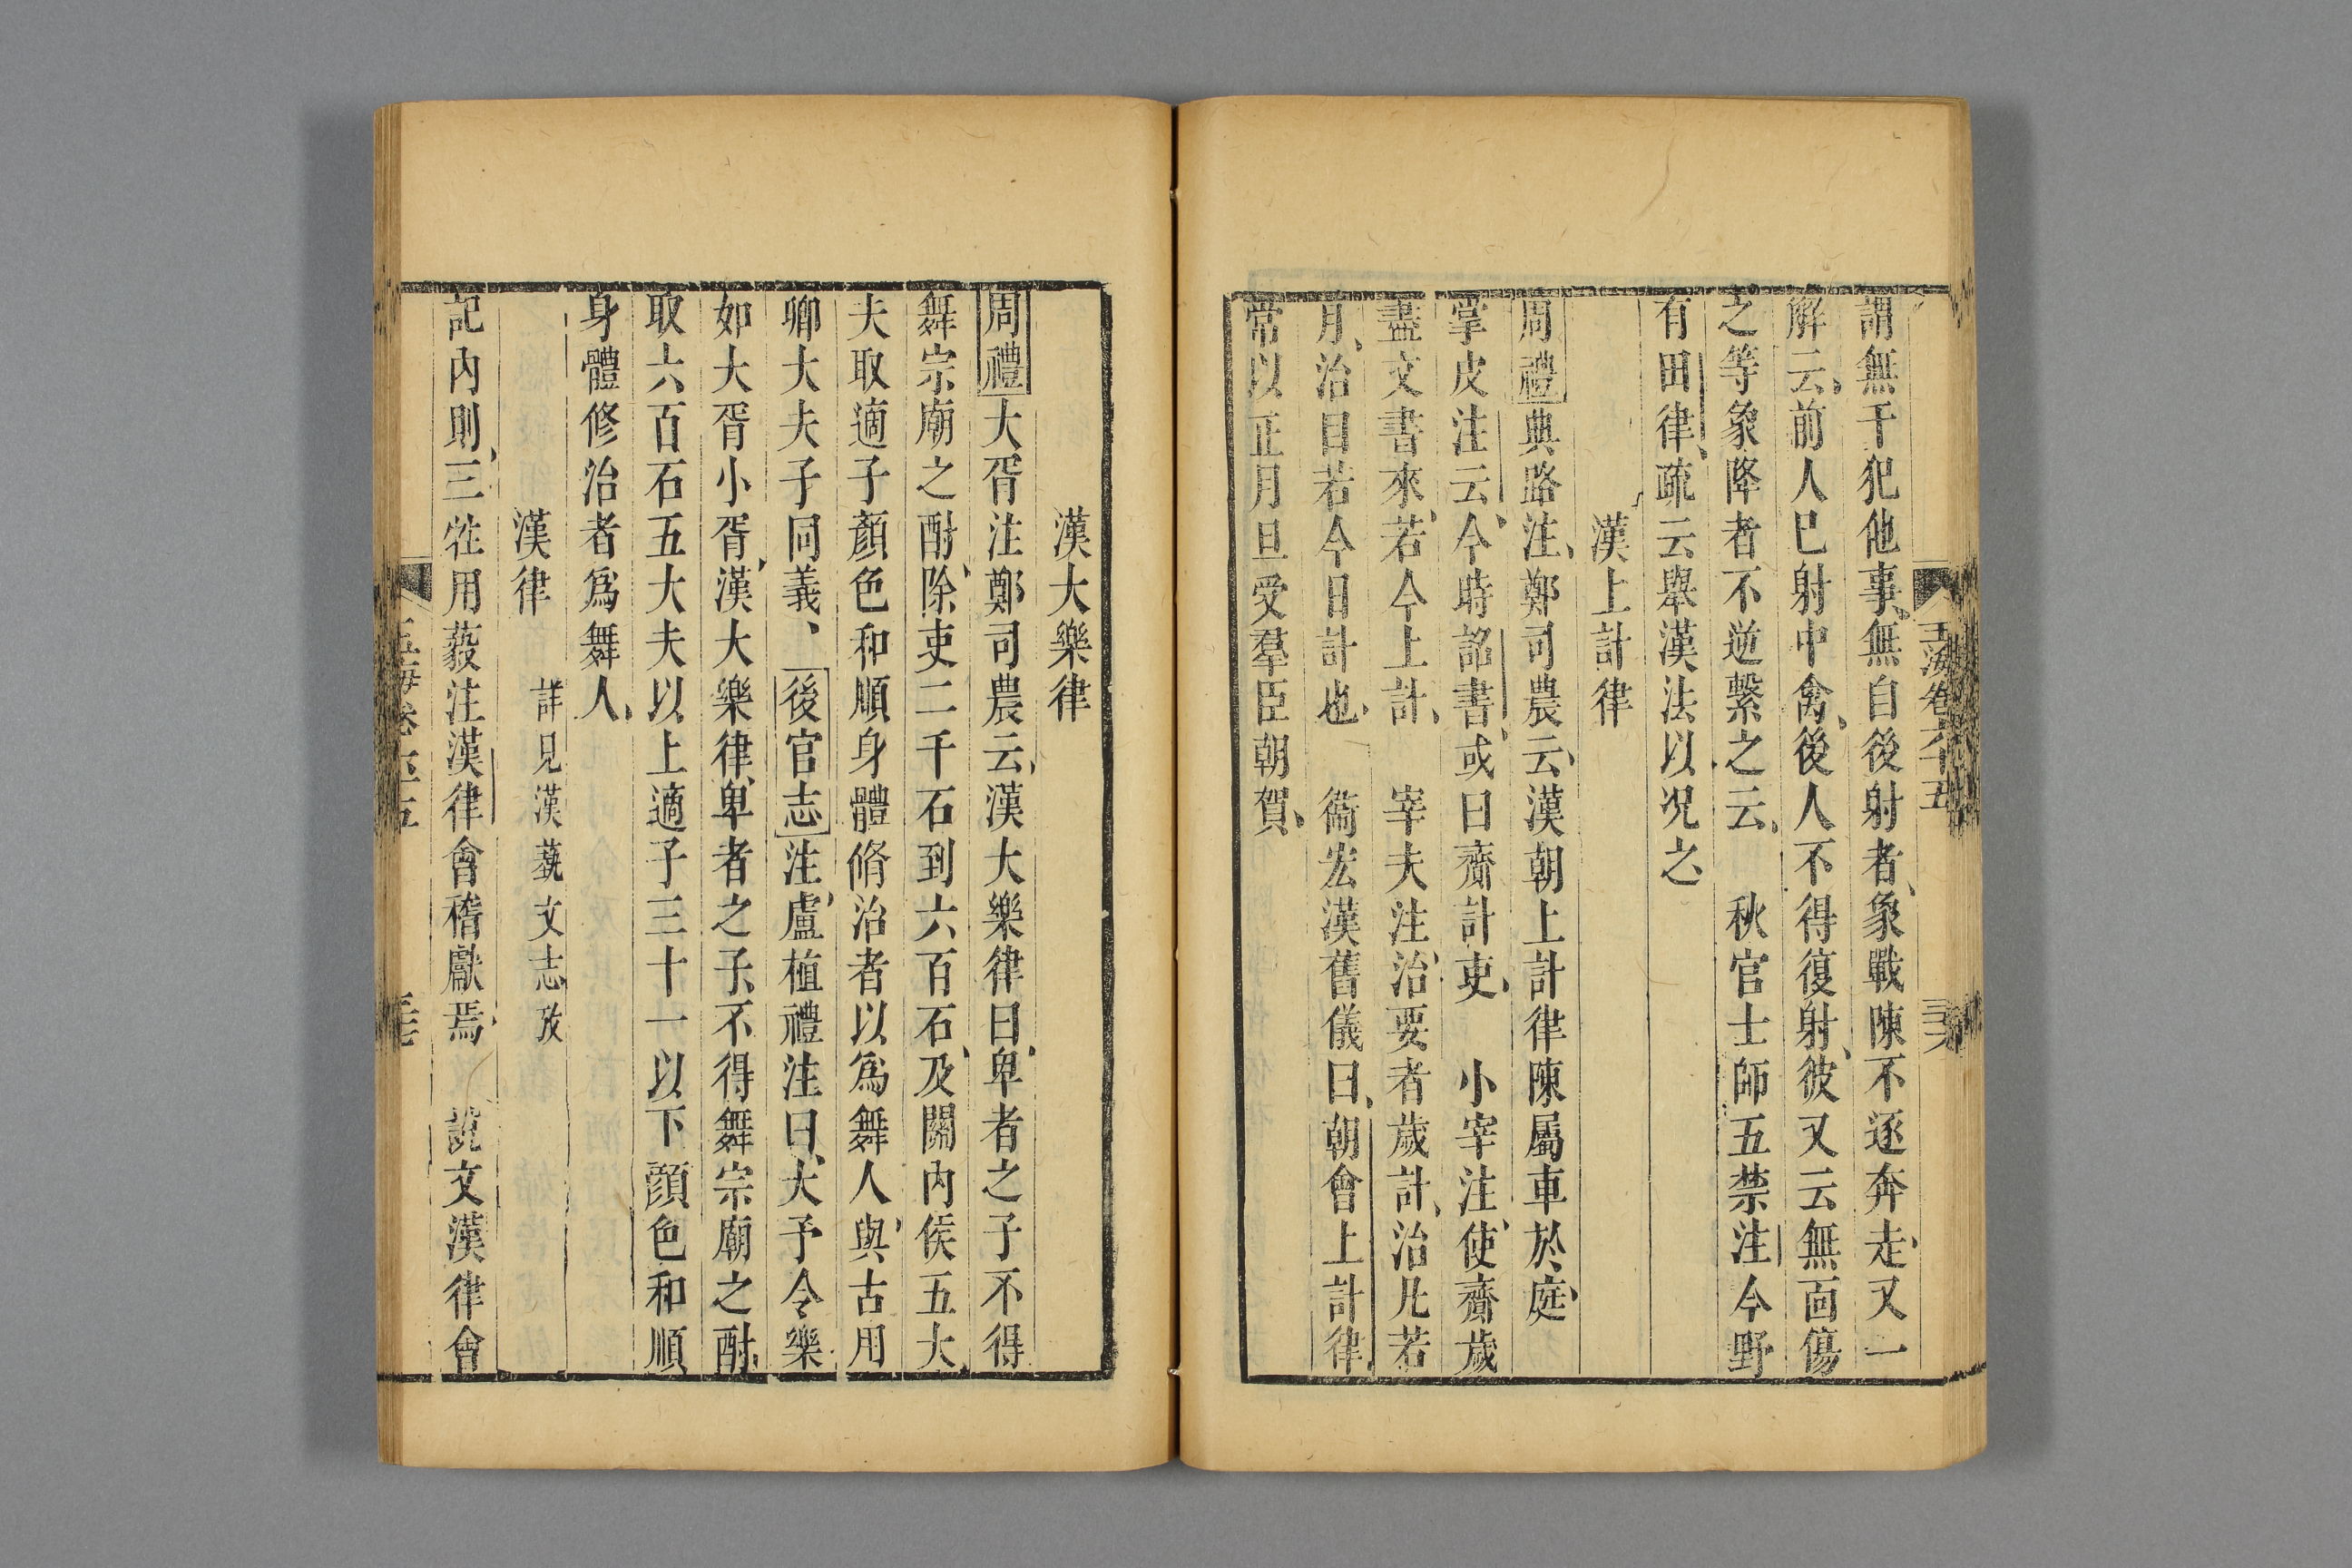 玉海卷六十五
謂無干犯他事無自後射者象戰陳不逐奔走又一
解云前人巳射中禽後人不得復射彼又云無面傷
之等象降者不逆繫之云 秋官士師五禁注今野
有田律疏云舉漢法以况之
漢上計律
周禮典路注鄭司農云漢朝上計律陳屬車於庭
掌皮注云今時詔書或曰齎計吏 小宰注使齎歲
盡文書來若今上計 宰夫注治要者歲計治凡若
月治目若今日計也 衞宏漢舊儀曰朝會上計律
常以正月旦受羣臣朝賀
漢大樂律
周禮大胥注鄭司農云漢大樂律曰卑者之子不得
舞宗廟之酎除吏二千石到六百石及關內侯五大
夫取適子顏色和順身體脩治者以爲舞人與古用
卿大夫子同義後官志注盧植禮注曰大予令樂
如大胥小胥漢大樂律卑者之子不得舞宗廟之酎
取六百石五大夫以上適子三十一以下顔色和順
身體修治者爲舞人
漢律 詳見漢藝文志攷
記內則三牲用藙注漢律會稽獻焉 說文漢律會